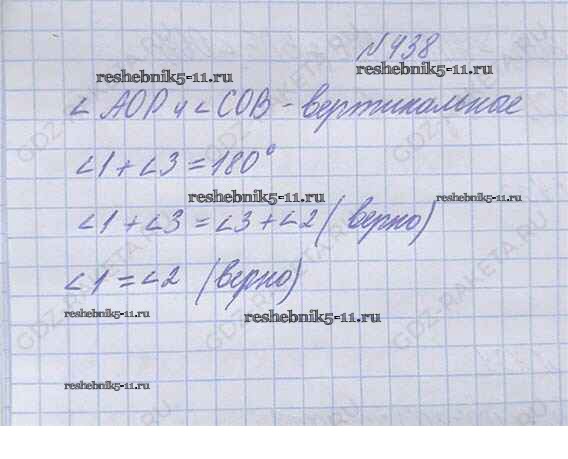 №438
reshebnik5-11.ru reshebnik5-11.ru
∠AOD и ∠COB - вертикальное
∠1 + ∠3 = 180°
reshebnik5-11.ru reshebnik5-11.ru
∠1 + ∠3 = ∠3 + ∠2 (верно)
∠1 = ∠2 (верно)
reshebnik5-11.ru reshebnik5-11.ru
reshebnik5-11.ru
GDZ-RAKETA.RU